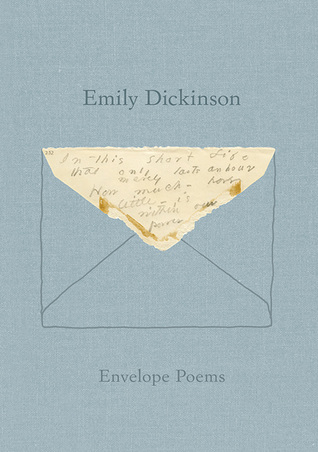 Emily Dickinson
In this short Life
that only lasts an hour
merely
How much - how
little - is
within our
power
Envelope Poems